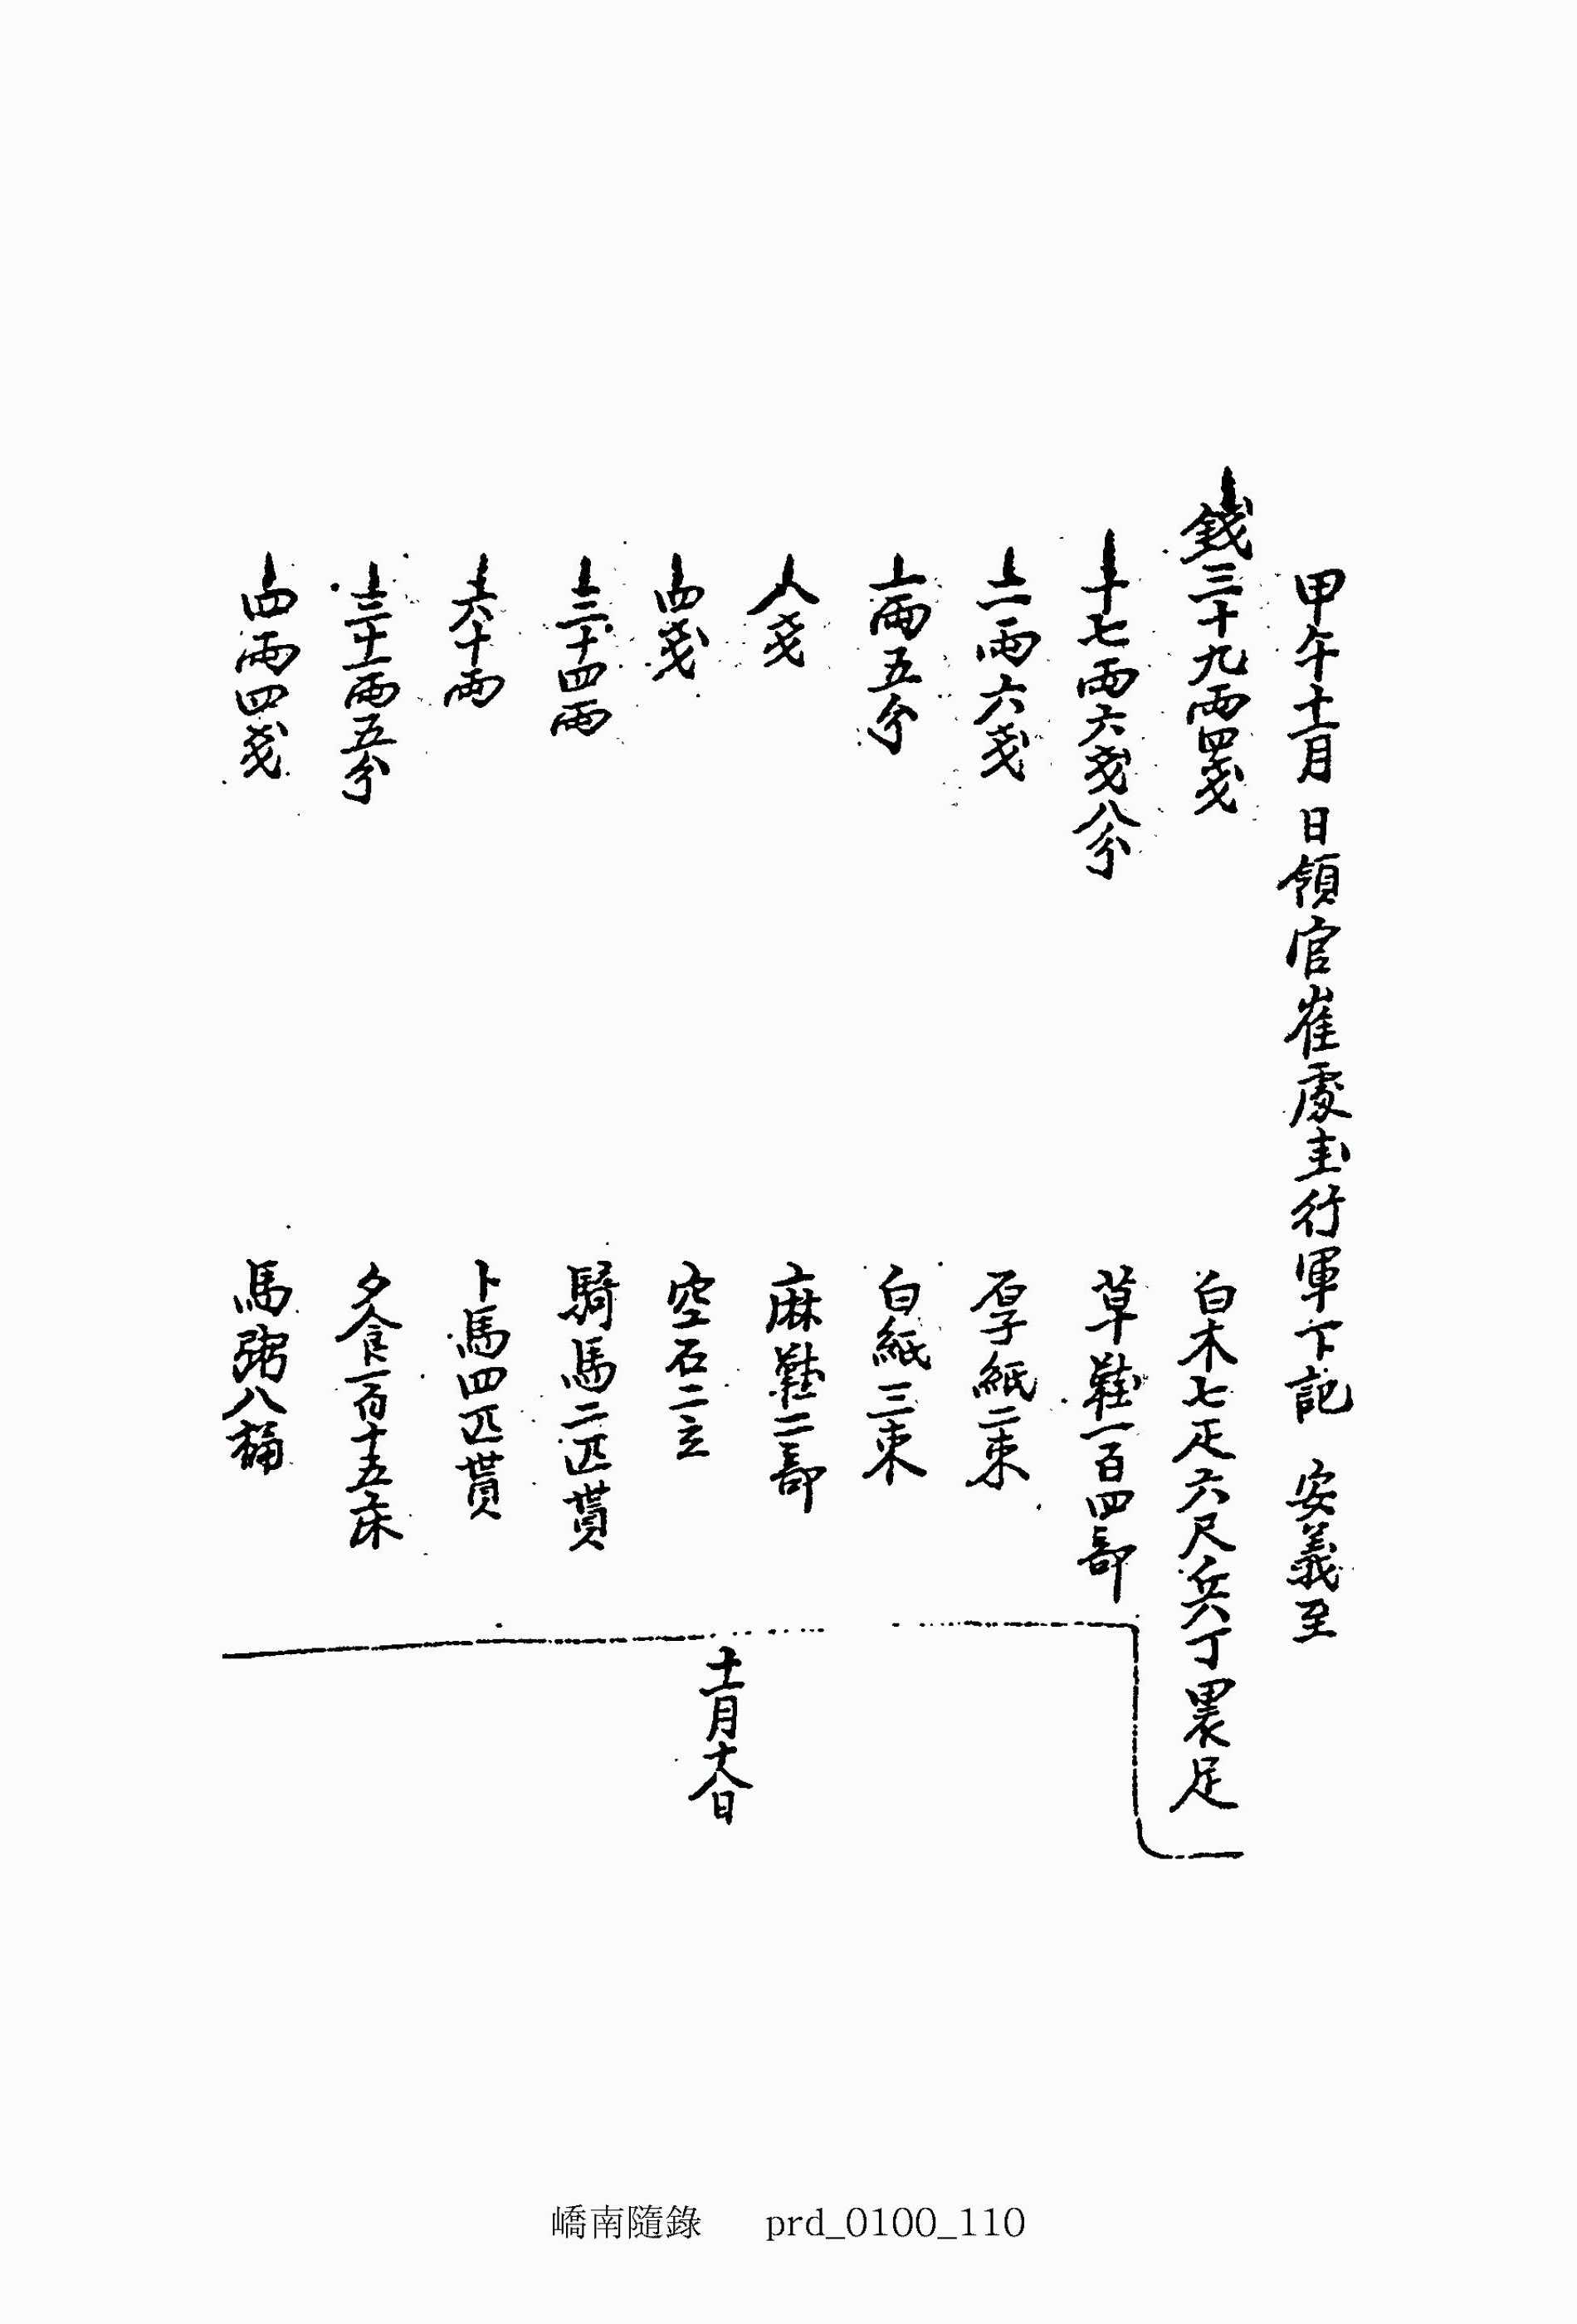 甲午十一月 日領官崔處圭行軍下記 安義至
錢三十九兩四戔 白木七疋六尺兵丁裹足
十七兩六戔八分 草鞋一百四部
二兩六戔 厚紙二束
一兩五分 白紙三束
八戔 麻鞋二部
四戔 空石二立
三十四兩 騎馬二匹貰
六十兩 卜馬四匹貰
三十一兩五分 夕食一百十五床
四兩四戔 馬粥八桶
十一月十八日
嶠南隨錄 prd_0100_110